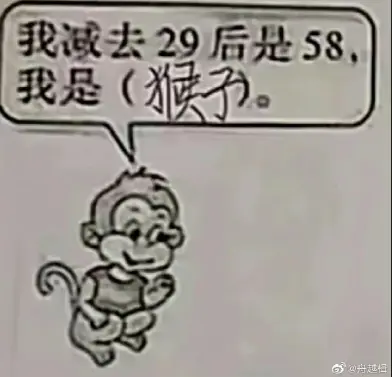 我减去29后是58，
我是（猴子）。